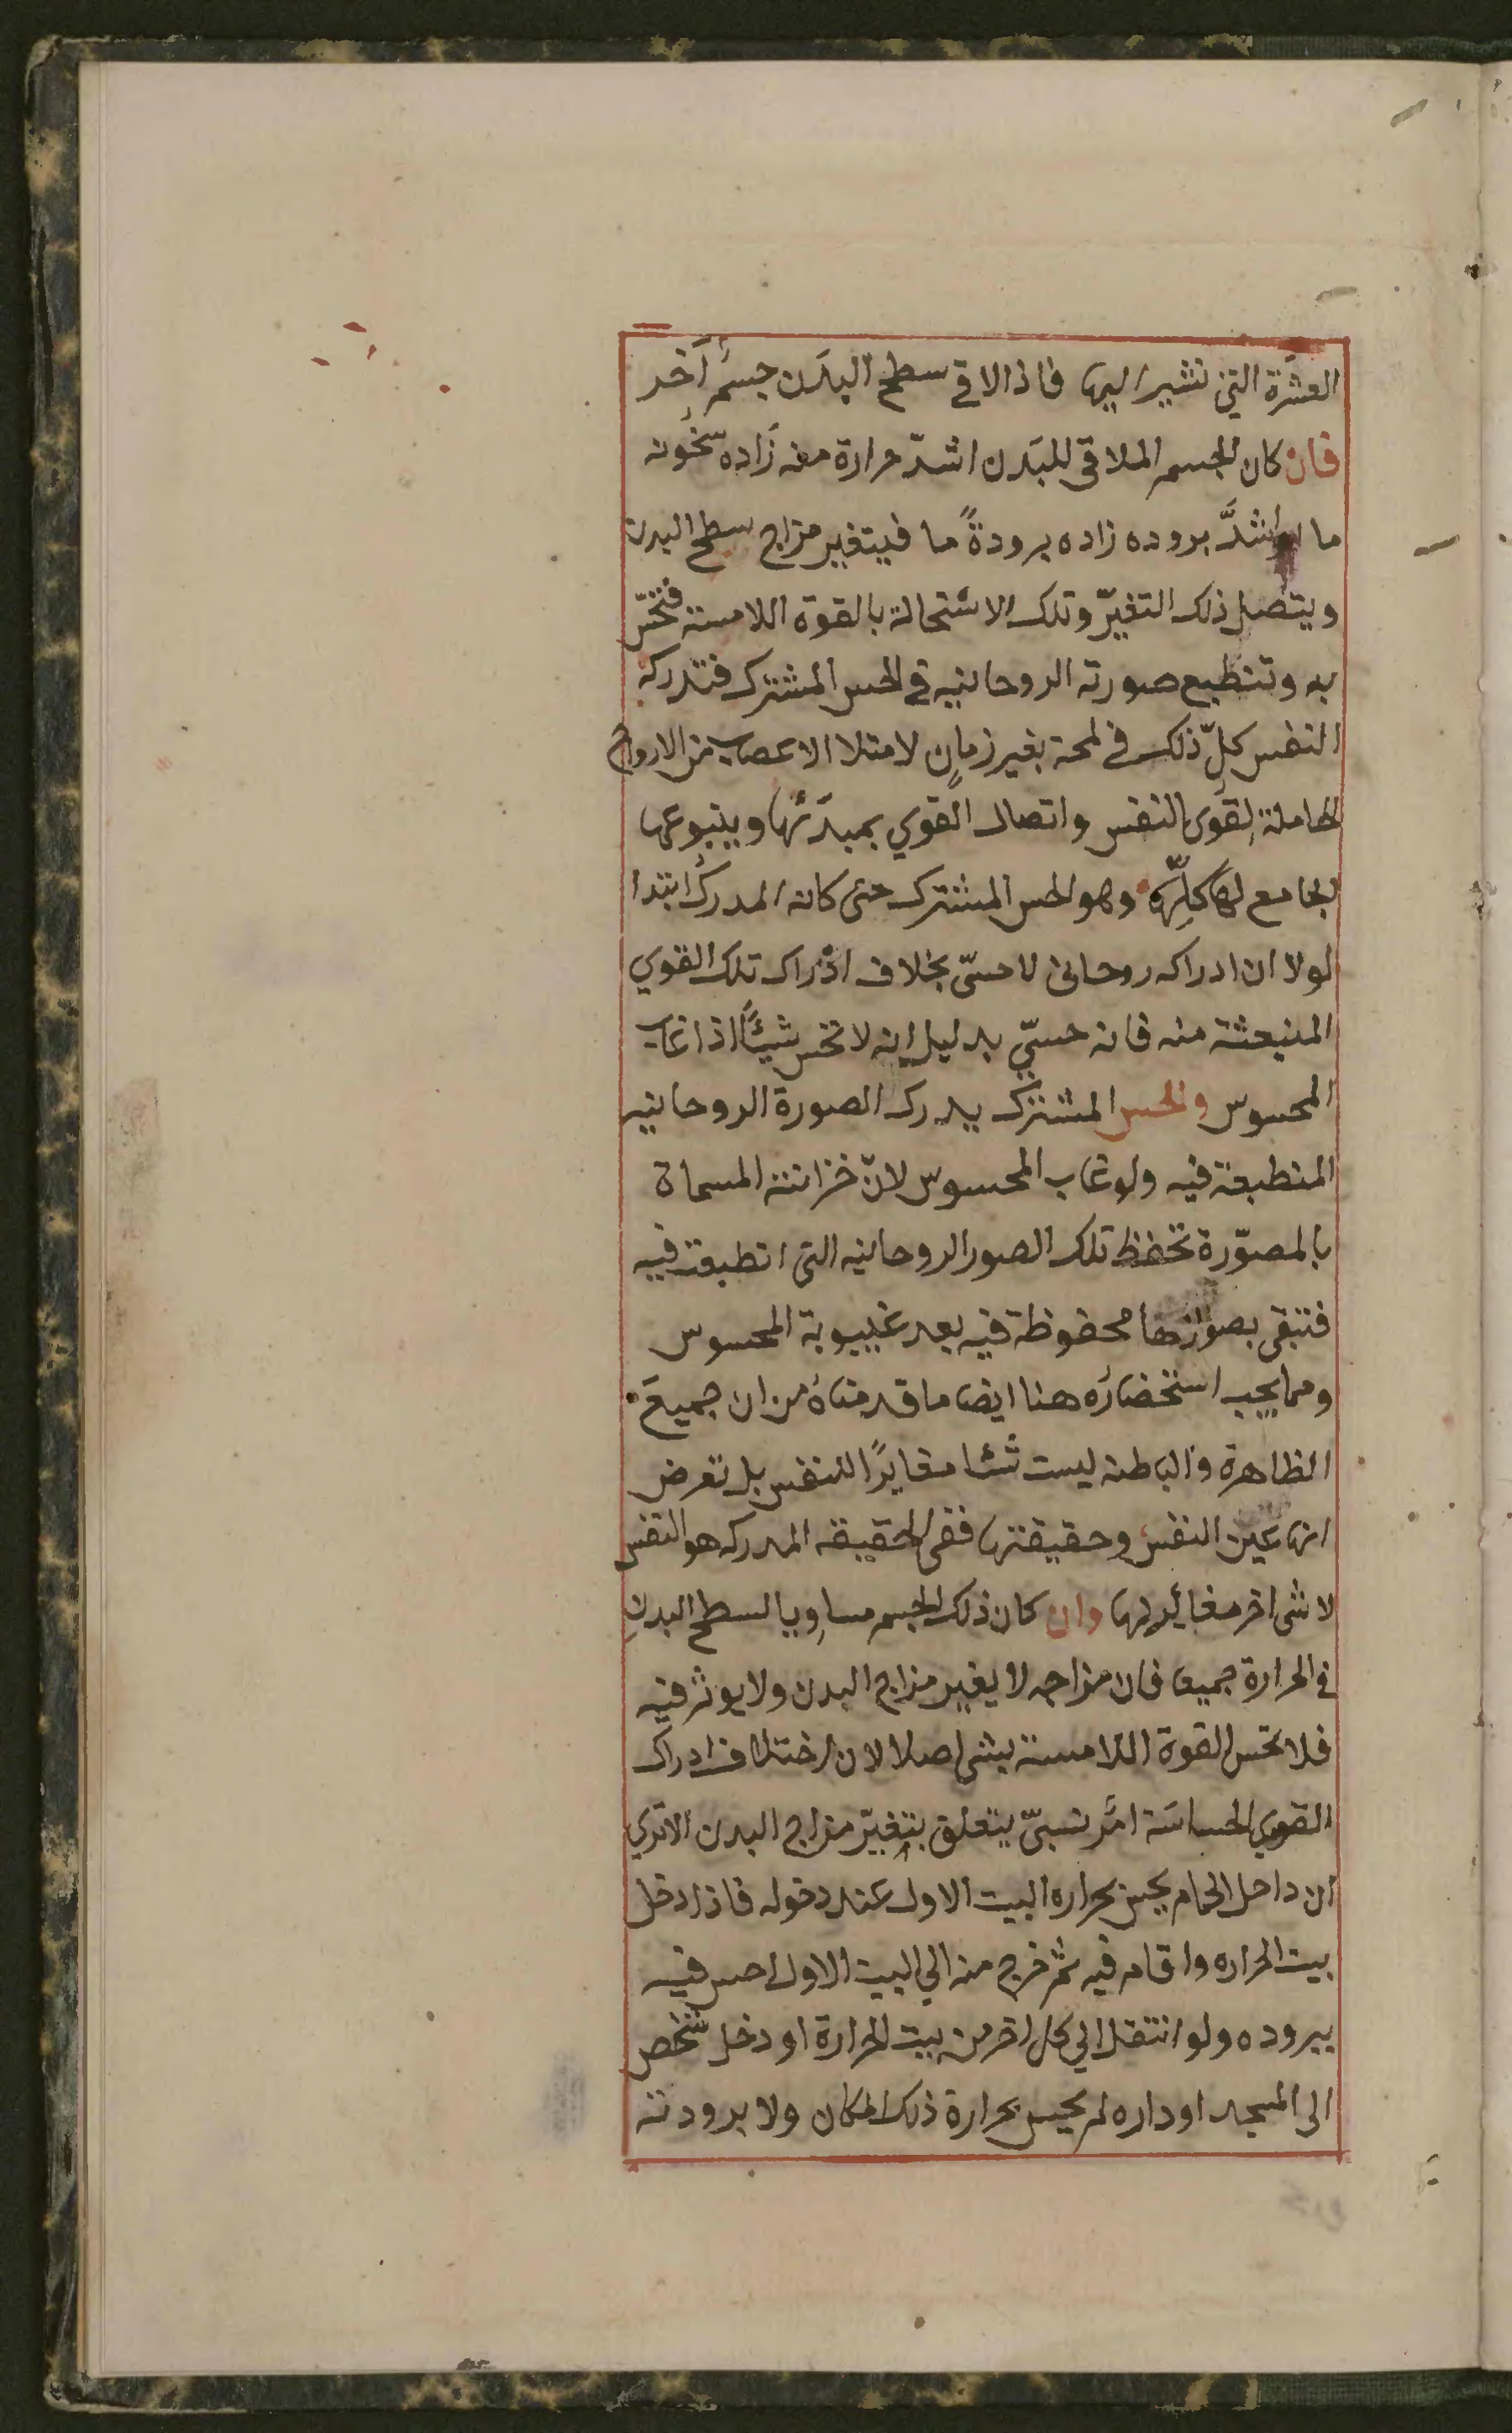 العشرة التي نشير اليها فاذا لاقي سطح البدن جسم آخر
فان كان الجسم الملاقي للبدن اشدّ حرارة منه زاده سخونه
ما او اشدَّ بروده زاده برودةً ما فيتغير مزاج سطح البدن
ويتصل ذلك التغيّر وتلك الاستحالة بالقوة اللامسة فتحسّ
به وتنطبع صورته الروحانيه في الحس المشترك فتدركه
النفس كلّ ذلك في لمحة بغير زمانٍ لامتلا الاعصاب من الارواح
الحاملة لقوى النفس واتصال القوي بمبدَئها وينبوعها
الجامع لها كلِّها وهو الحس المشترك حتى كانه المدرك ابتدا
لولا ان ادراكه روحاني لا حسّي بخلاف ادراك تلك القوي
المنبعثة منه فانه حسيّ بدليل انه لا تحس شيئًا اذا غاب
المحسوس والحس المشترك يدرك الصورة الروحانيه
المنطبعة فيه ولو غاب المحسوس لانّ خزانته المسماة
بالمصوّرة تحفظ تلك الصور الروحانيه التي انطبعت فيه
فتبقى بصورتها محفوظة فيه بعد غيبوبة المحسوس
ومما يجب استحضاره هنا ايضا ما قدمناه من ان جميع
الظاهرة والباطنه ليست شئا مغايرًا للنفس بل تعرض
انها عين النفس وحقيقتها ففي الحقيقه المدركه هو النفس
لا شى اخر مغايرٍ لها وان كان ذلك الجسم مساويا لسطح البدنِ
في الحرارة جميعا فان مزاجه لا يغير مزاج البدن ولا يوثر فيه
فلا تحس القوة اللامسة بشى اصلا لان اختلاف ادراك
القوي الحساسَة امر نسبيّ يتعلق بتغيّر مزاج البدن الا تري
ان داخل الحمام يحس بحراره البيت الاول عند دخوله فاذا دخل
بيت الحراره واقام فيه ثم خرج منه الي البيت الاول احس فيه
ببروده ولو انتقل الي محل اخر من بيت الحرارة او دخل شخص
الى المسجد او داره لم يحس بحرارة ذلك المكان ولا برودته